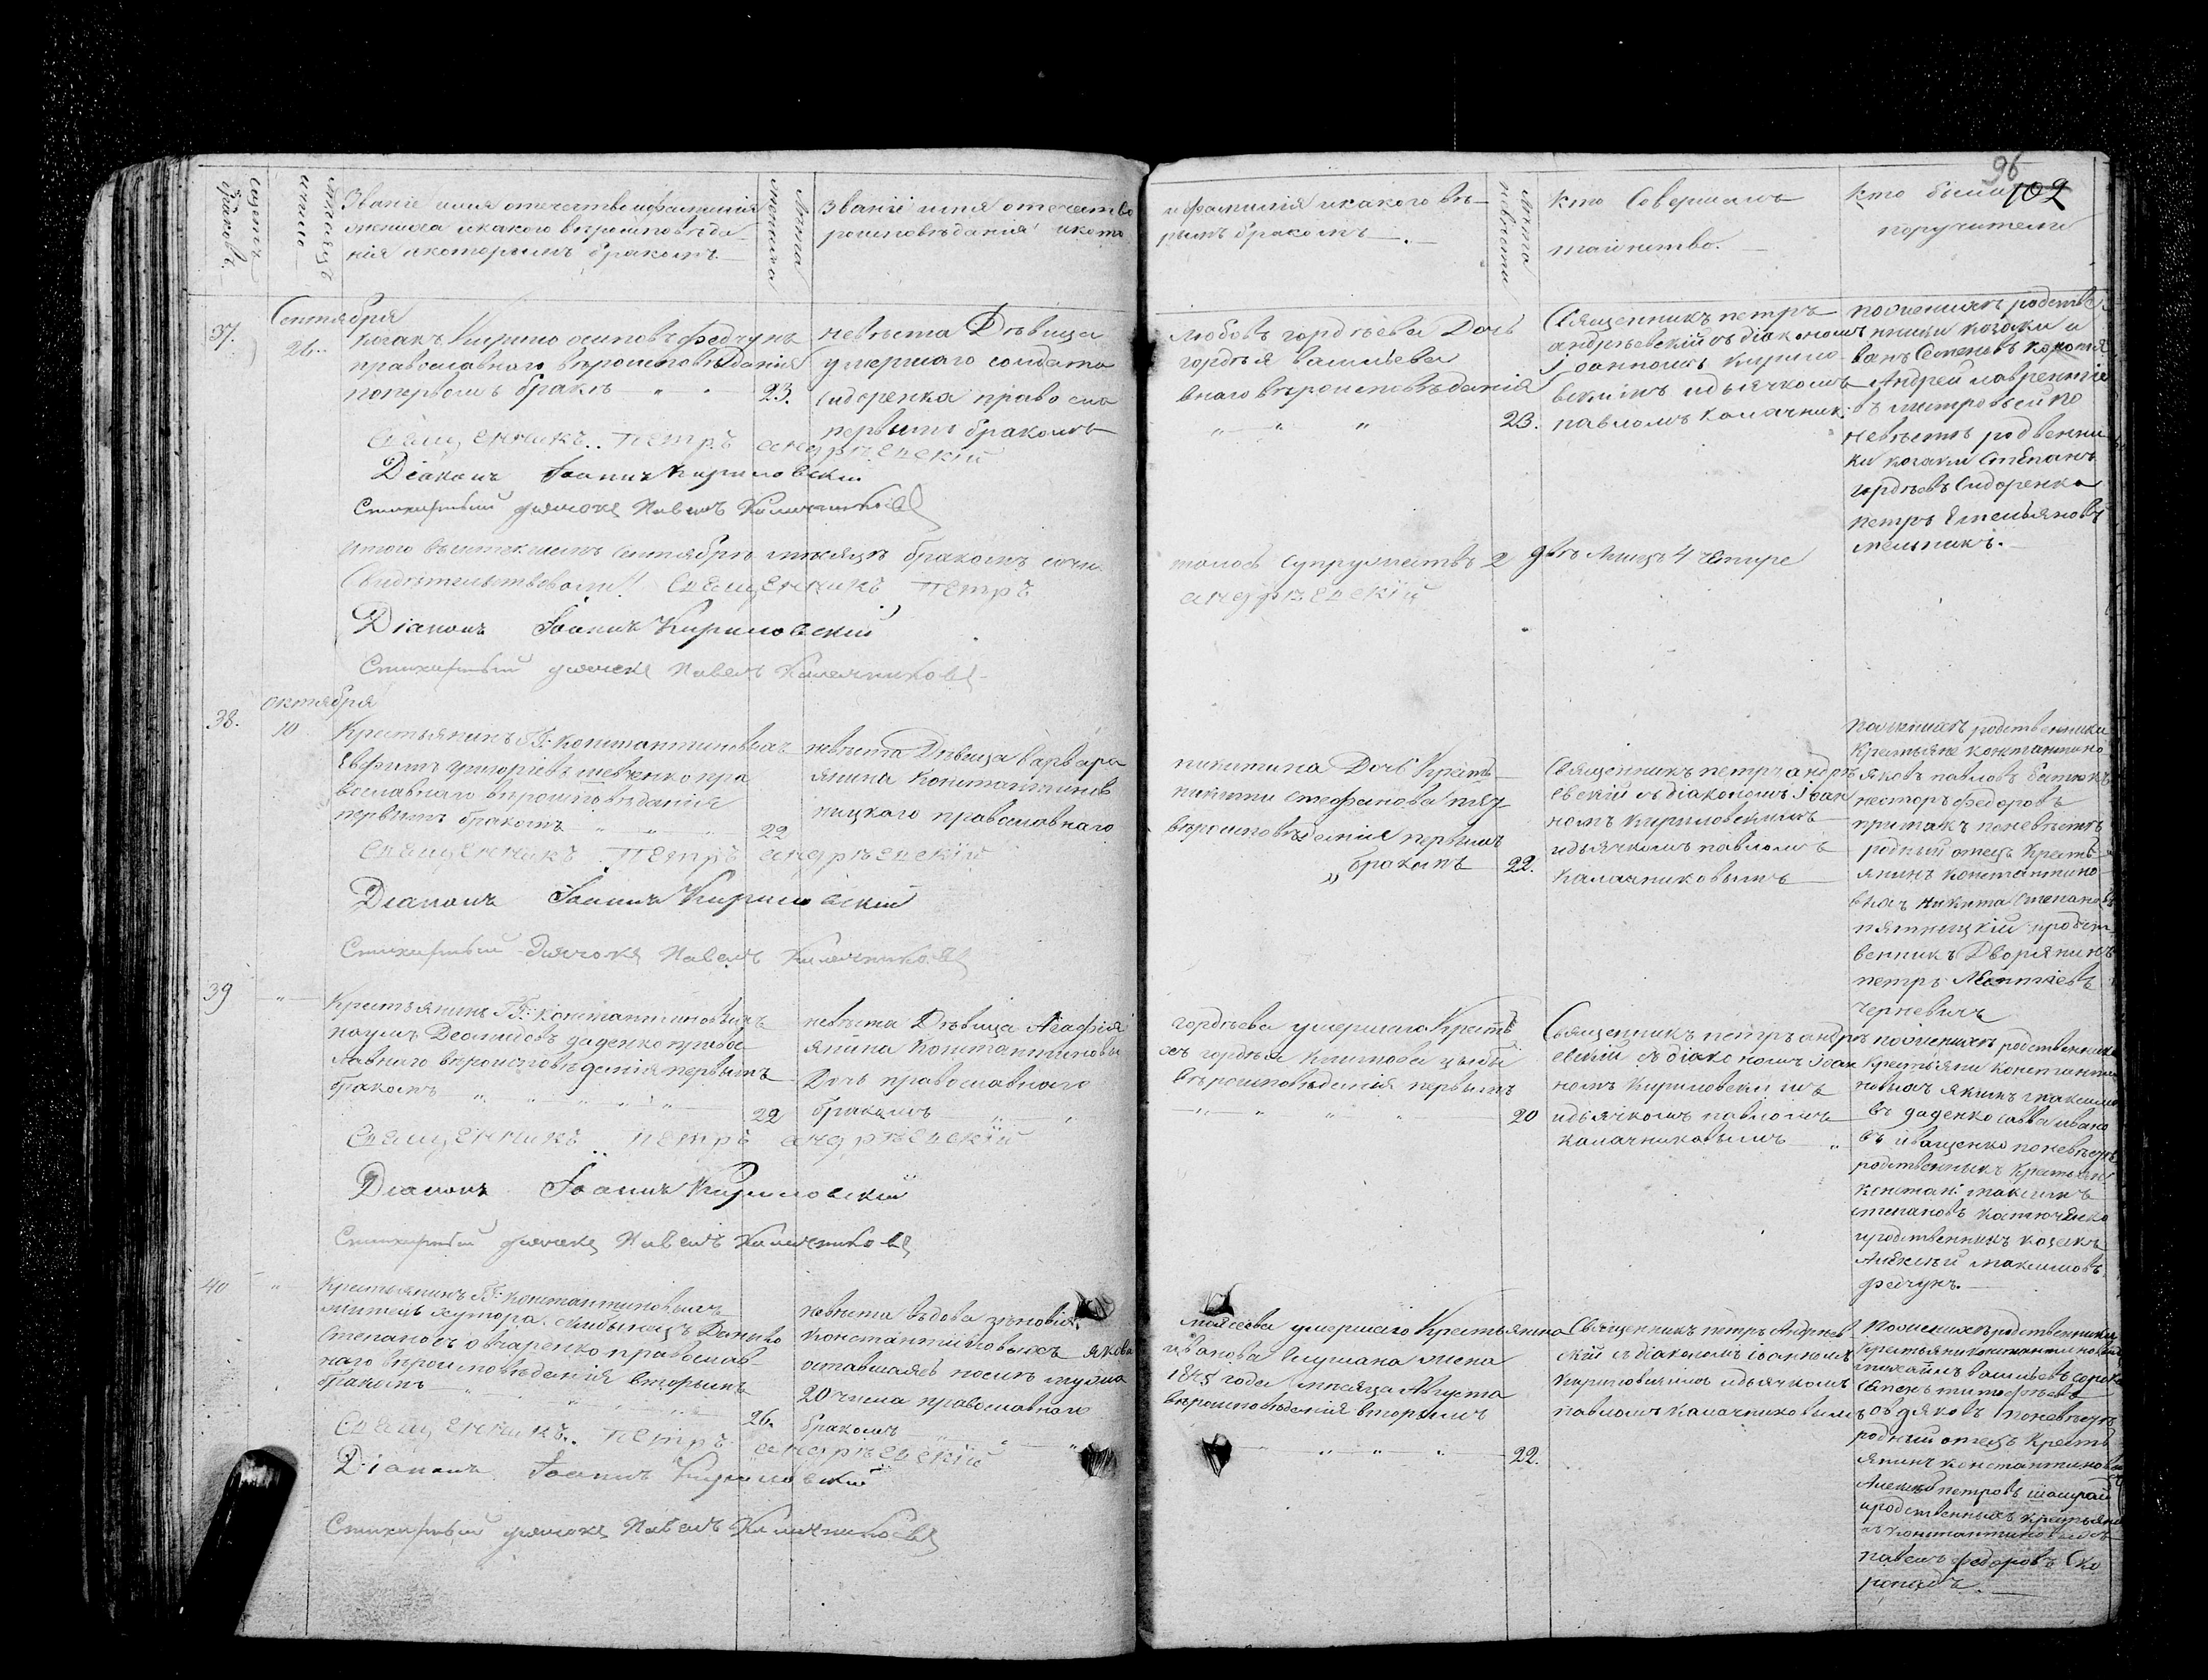 96
102
Щетъ браковъ.
Мѣсяцъ и число
Званіе имя отечество и фамилія
жениха и какого вѣроисповѣда
нія и которымъ бракомъ
Лѣта жениха
Званіе имя отечество
роисповѣданія и кото
и фамилія и какого вѣ
рымъ бракомъ
Лѣта невѣсты
Кто Совершалъ
таинство.
Кто были
поручители
37.
Сентября
26.
козакъ Кирило осиповъ федчунъ
православнаго вѣроисповѣданія
попервомъ бракѣ
23.
невѣста Дѣвица
умершаго солдата
Сидоренка право сла
первымъ бракомъ
любовъ гордѣева Дочь
гордѣя васильева
внаго вѣроисповѣданія
23.
Священникъ петръ
андрѣевскій съ діакономъ
іоанномъ кирило
вскимъ идьячкомъ
павломъ калачник.
поженихѣ родстве
нники козаки и
ванъ Семеновъ
Андрей лаврентіе
въ
невѣстѣ родвенни
ки козаки Степанъ
гордѣевъ Сидоренко
петръ Емельяновъ
мельникъ.
Священникъ Петръ андрѣевскій
Діаконъ Іоаннъ Кириловскій
Стихарный дьячокъ Павелъ Калачниковъ
итого въ сентябрѣ мѣсяцѣ бракомъ соче
талось супружествъ 2 двѣ лицъ 4 четыре
Свидѣтельствовали: Священникъ Петръ
андрѣевскій
Діаконъ Іоаннъ Кириловскій
Стихарный дьячокъ Павелъ Калачниковъ
38.
октября
10
Крестьянинъ Г: Константиновыхъ
Евфимъ григоріевъ шевченко пра
вославнаго вѣроисповѣданія
первымъ бракомъ
22
невѣста Дѣвица варвара
янина Константинов
ницкаго православнаго
никитина Дочь Кресть
никиты стефанова пят
вѣроисповѣданія первымъ
бракомъ
22.
Священникъ петръ андрѣ
евскій съ діакономъ іоан
номъ кириловскимъ
идьячкомъ павломъ
калачниковымъ
поженихѣ родственники
Крестьяне константино
яковъ павловъ
несторъ федоровъ
притакъ поневѣстѣ
родный отецъ Кресть
янинъ константино
выхъ никита Степановъ
пятницкій иродст
венникъ Дворянинъ
петръ
черневичъ
Священникъ Петръ андрѣевскій
Діаконъ Іоаннъ Кириловскій
Стихарный дьячокъ Павелъ Калачниковъ
39
Крестьянинъ Г: константиновыхъ
наумъ Деомидовъ даденко правос
лавнаго вѣроисповѣданія первымъ
бракомъ
22
невѣста Дѣвица Агафія
янина Константиновы
Дочь православнаго
бракомъ
гордѣева умершаго Кресть
хъ гордѣя Климова цыбы
вѣроисповѣданія первымъ
20
Священникъ петръ андрѣ
евскій съ діакономъ іоан
номъ кириловскимъ
идьячкомъ павломъ
калачниковымъ
поженихѣ родственники
крестьяни константи
новыхъ якимъ максимо
въ даденко савва ивано
въ иващенко поневѣстѣ
родственникъ крестьян
констан: максимъ
степановъ
иродственникъ козакъ
Алексѣй максимовъ
федчунъ.
Священникъ Петръ андрѣевскій
Діаконъ Іоаннъ Кириловскій
Стихарный дьячокъ Павелъ Калачниковъ
40
Крестьянинъ Г: константиновыхъ
житель хутора Данило
Степановъ овчаренко православ
наго вѣроисповѣданія вторымъ
бракомъ
26.
невѣста вдова зѣновія
Константиновыхъ якова
оставшаясь послѣ мужа
20 числа православнаго
бракомъ
моисеева умершаго Крестьянина
иванова жена
1845 года мѣсяца Августа
вѣроисповѣданія вторымъ
22.
Священникъ петръ Андрѣев
скій съ діакономъ іоанномъ
кириловскимъ идьячкомъ
павломъ калачниковымъ
поженихѣ родственники
крестьяни константиновых
михаилъ васильевъ сорока
Семенъ тимофѣевъ
поневѣстѣ
родный отецъ Кресть
янинъ константиновы
петровъ
иродственникъ крестьяни
нъ константиновыхъ
павелъ федоровъ Ско
ропадъ.
Священникъ Петръ андрѣевскій
Діаконъ Іоаннъ Кириловскій
Стихарный дьячокъ Павелъ Калачниковъ